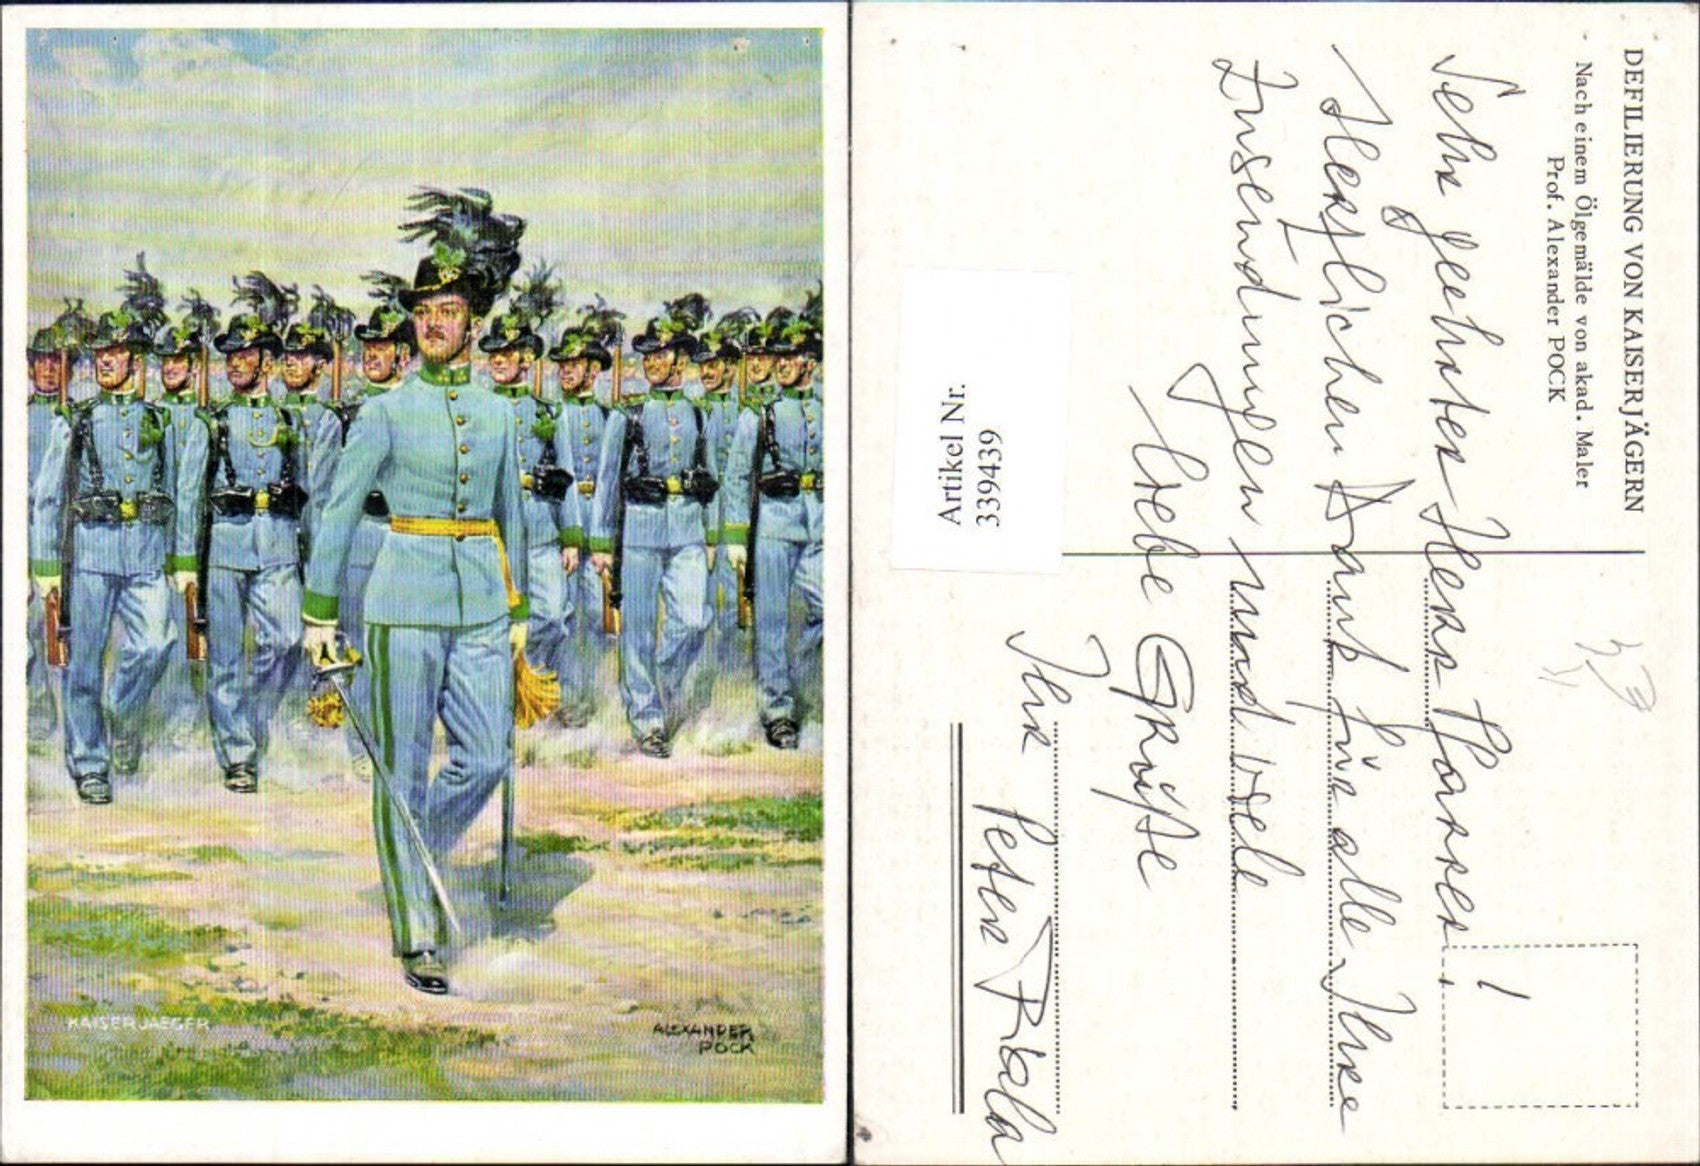 KAISERJAEGER
ALEXANDER
POCK
DEFILIERUNG VON KAISERJÄGERN
Nach einem Ölgemälde von akad. Maler
Prof. Alexander POCK
Sehr geehrter Herr Pfarrer!
Herzlichen Dank für alle Ihre
Zusendungen und viele
liebe Grüße
Ihr
Peter
Artikel Nr.
339439